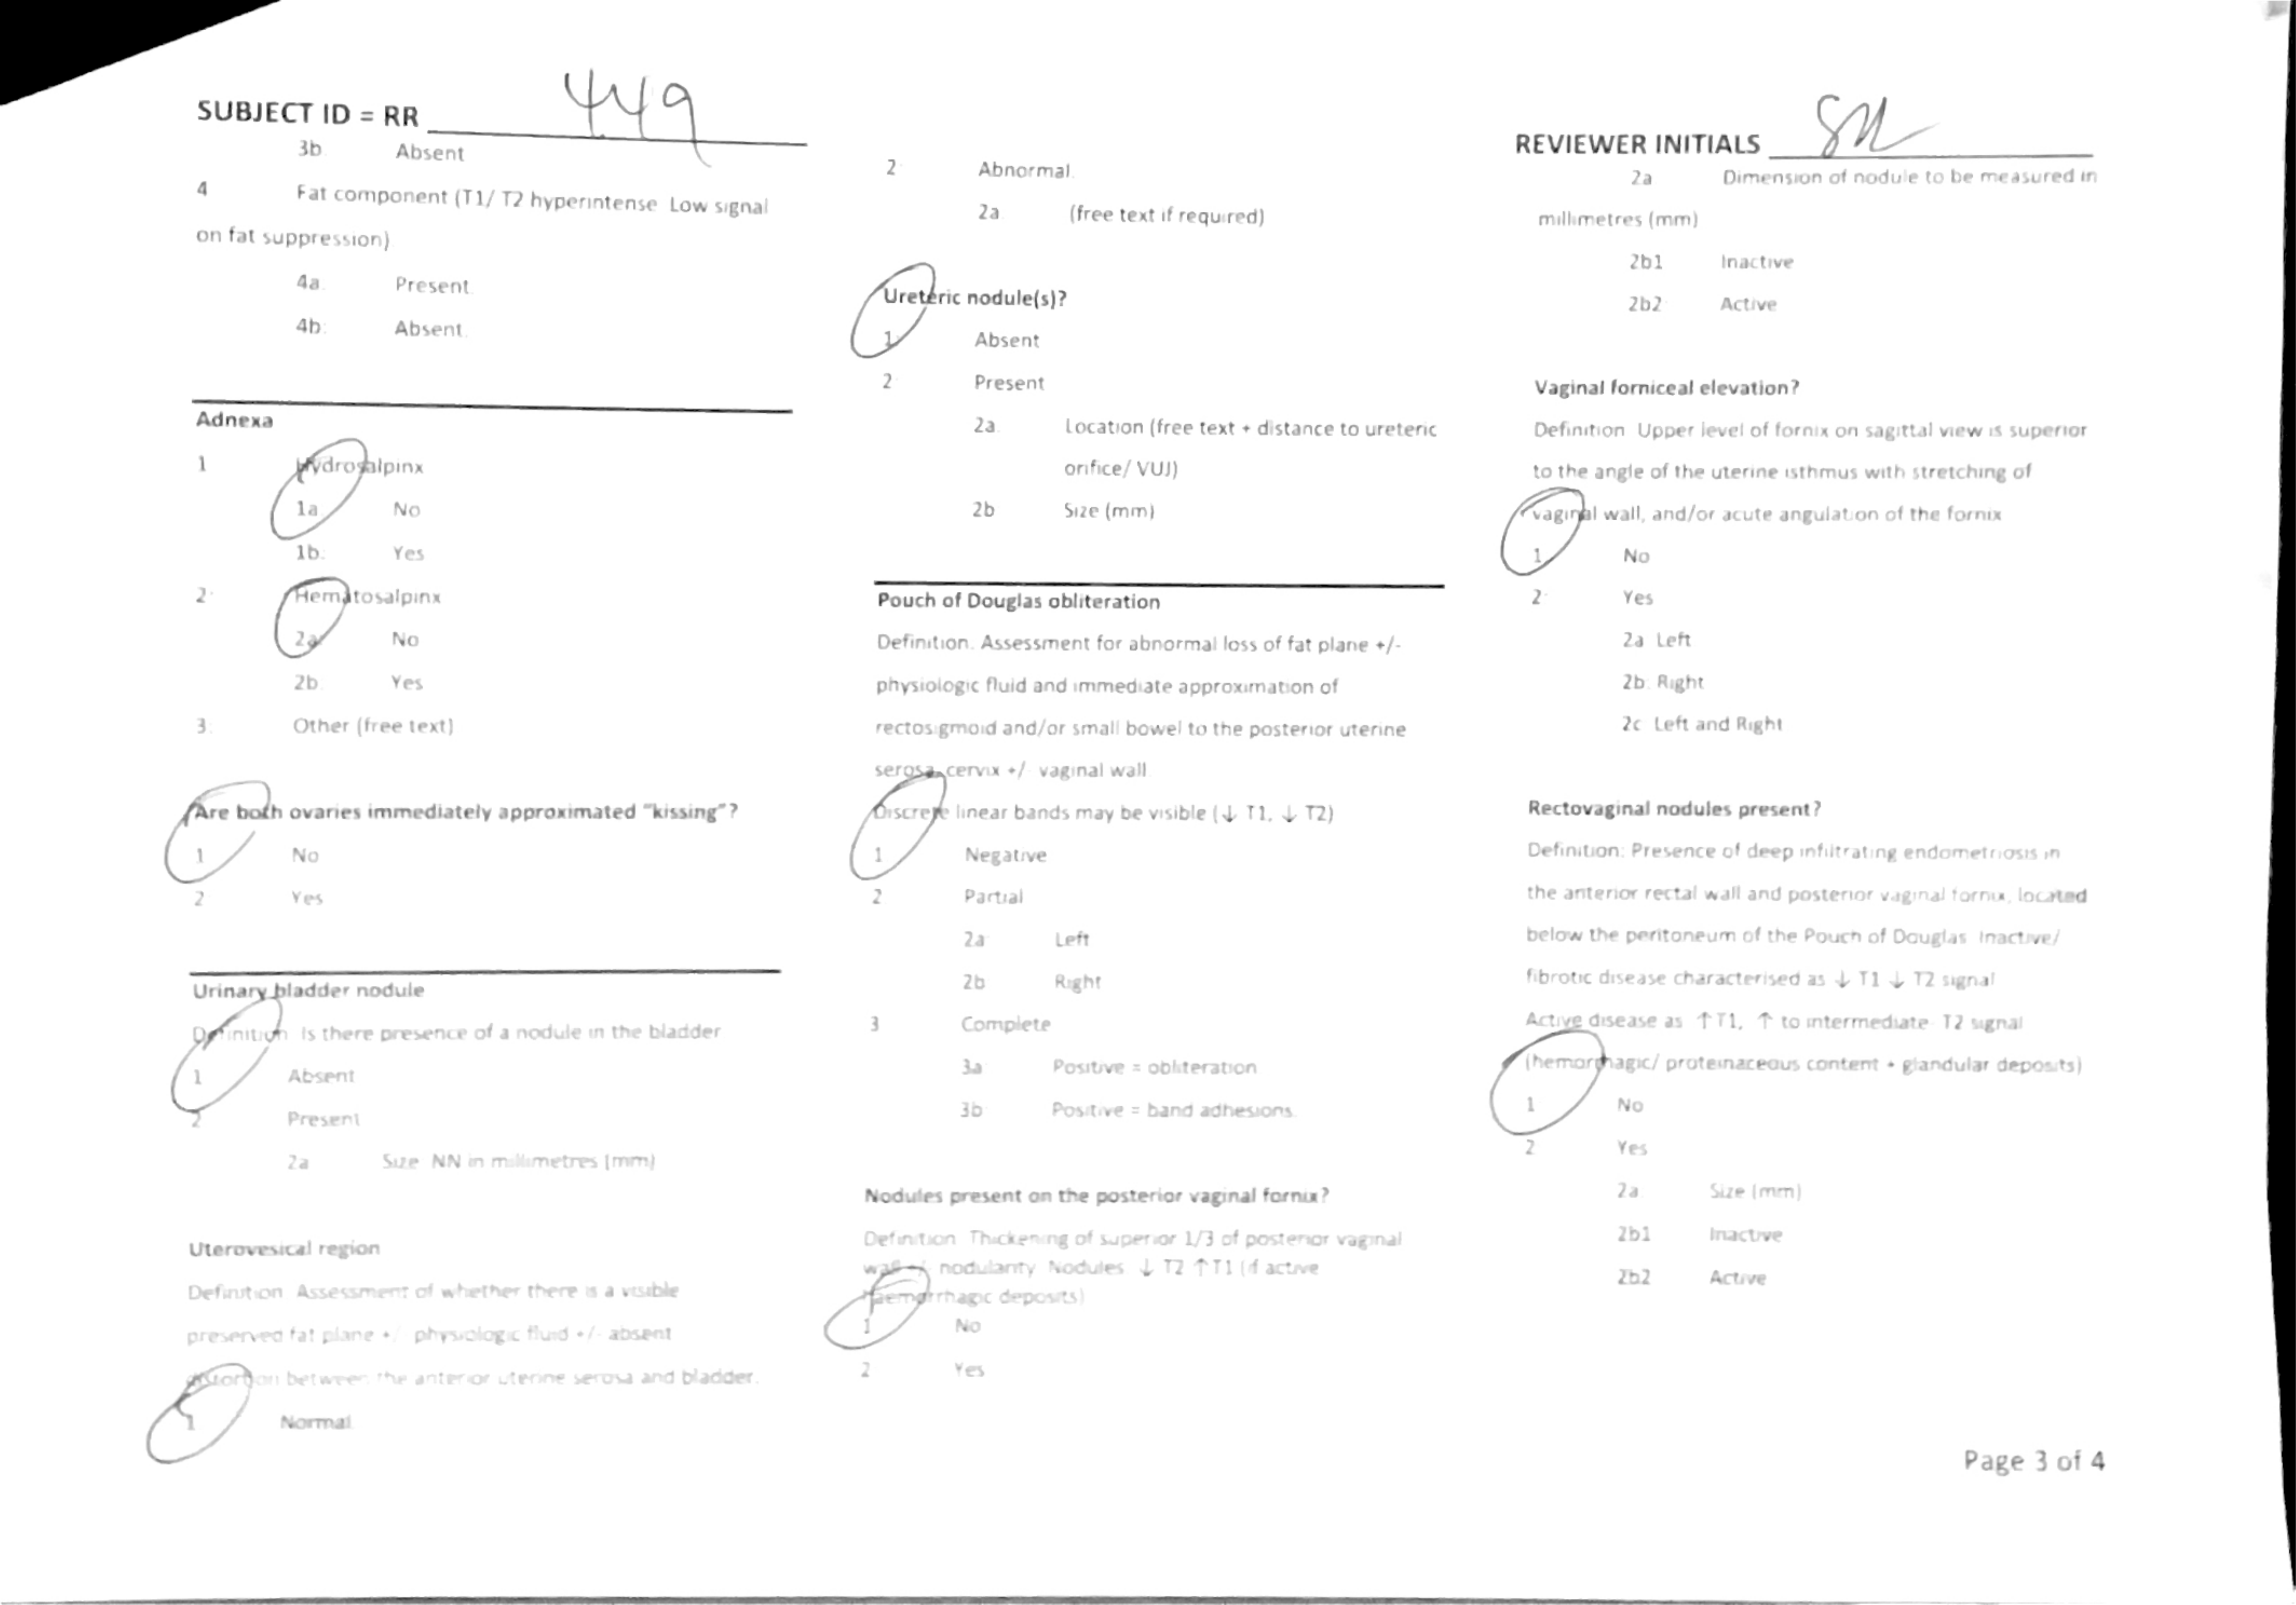 SUBJECT ID = RR 449
3b Absent
4 Fat component (T1/ T2 hyperintense Low signal
on fat suppression)
4a. Present.
4b: Absent.
Adnexa
1 Hydrosalpinx
1a No
1b: Yes
2: Hematosalpinx
2a No
2b: Yes
3: Other (free text)
Are both ovaries immediately approximated "kissing"?
1 No
2 Yes
Urinary bladder nodule
Definition Is there presence of a nodule in the bladder
1 Absent
2 Present
2a Size NN in millimetres (mm)
Uterovesical region
Definition Assessment of whether there is a visible
preserved fat plane +/ physiologic fluid +/- absent
distortion between the anterior uterine serosa and bladder.
1 Normal
2: Abnormal.
2a (free text if required)
Ureteric nodule(s)?
1: Absent
2: Present
2a. Location (free text + distance to ureteric
orifice/ VUJ)
2b Size (mm)
Pouch of Douglas obliteration
Definition. Assessment for abnormal loss of fat plane +/-
physiologic fluid and immediate approximation of
rectosigmoid and/or small bowel to the posterior uterine
serosa, cervix +/ vaginal wall
Discrete linear bands may be visible (↓ T1, ↓ T2)
1 Negative
2 Partial
2a Left
2b Right
3 Complete
3a Positive = obliteration
3b Positive = band adhesions.
Nodules present on the posterior vaginal fornix?
Definition Thickening of superior 1/3 of posterior vaginal
wall +/ nodularity Nodules ↓ T2 ↑T1 (if active
haemorrhagic deposits)
1 No
2 Yes
REVIEWER INITIALS SM
2a Dimension of nodule to be measured in
millimetres (mm)
2b1 Inactive
2b2 Active
Vaginal forniceal elevation?
Definition Upper level of fornix on sagittal view is superior
to the angle of the uterine isthmus with stretching of
vaginal wall, and/or acute angulation of the fornix
1 No
2: Yes
2a Left
2b. Right
2c Left and Right
Rectovaginal nodules present?
Definition: Presence of deep infiltrating endometriosis in
the anterior rectal wall and posterior vaginal fornix, located
below the peritoneum of the Pouch of Douglas Inactive/
fibrotic disease characterised as ↓ T1 ↓ T2 signal
Active disease as ↑T1, ↑ to intermediate T2 signal
(hemorrhagic/ proteinaceous content + glandular deposits)
1 No
2 Yes
2a. Size (mm)
2b1 Inactive
2b2 Active
Page 3 of 4